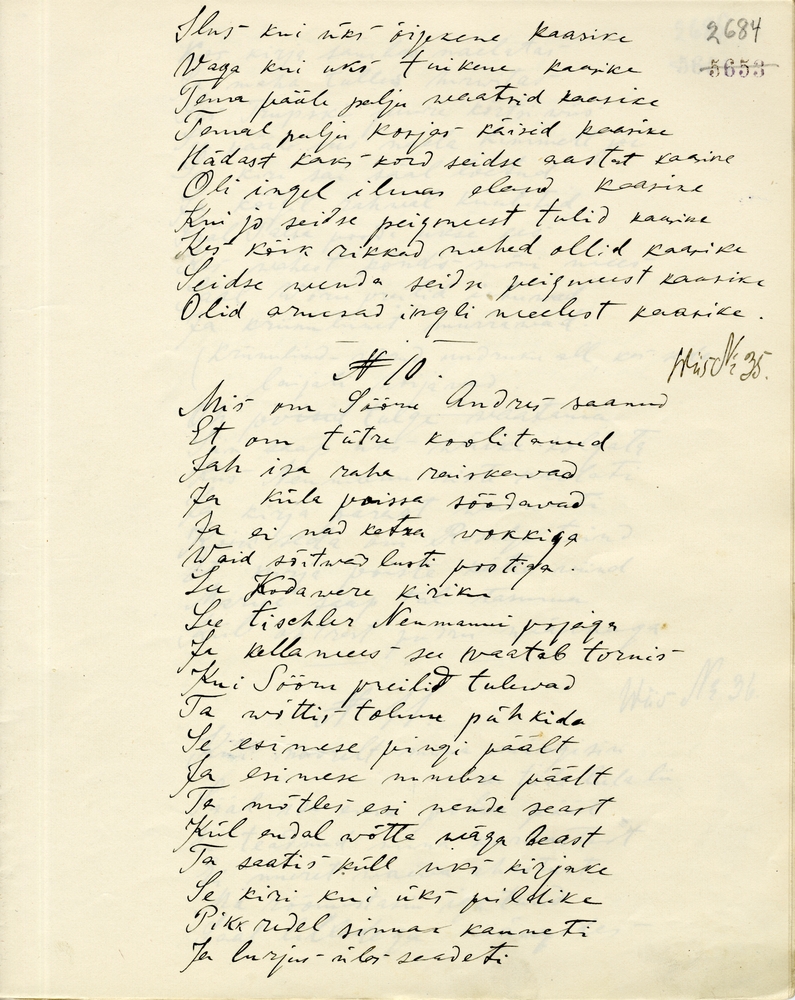 2684
5653
Ilus kui üks õijekene kaasike
Waga kui uks tuikene kaasike
Tema pääle palju waatsid kaasike
Temal palju kosjas käisid kaasike
Nädast kaks kord seidse aastat kaasike
Oli ingel ilmas eland kaasike
Kui jo seidse peigmeest tulid kaasike
Kes kõik rikkad mehed ollid kaasike
Seidse wenda seidse peigmeest kaasike
Olid armsad ingli meelest kaasike.
N 10.
Wiis № 35.
Mis om Sööru Andres saanud
Et om tütre koolitanud
Jah isa raha raiskawad
Ja küla poissa söödawad
Ja ei nad ketra wokkiga
Waid sõitwad lusti pootiga.
Se Kodawere kiriku
See tischler Neumanni pojaga
Ja kellamees see waatab tornis
Kui Sööru preilid tulewad
Ta wõttis tolmu pühkida
Se esimese pingi päält
Ja esimese numbre päält
Ta mõtles esi nende seast
Kül endal wõtta wäga heast
Ta saatis küll üks kirjake
Se kiri kui üks pildike
Pikk redel sinna kanneti
Ja lurjus üles saadeti